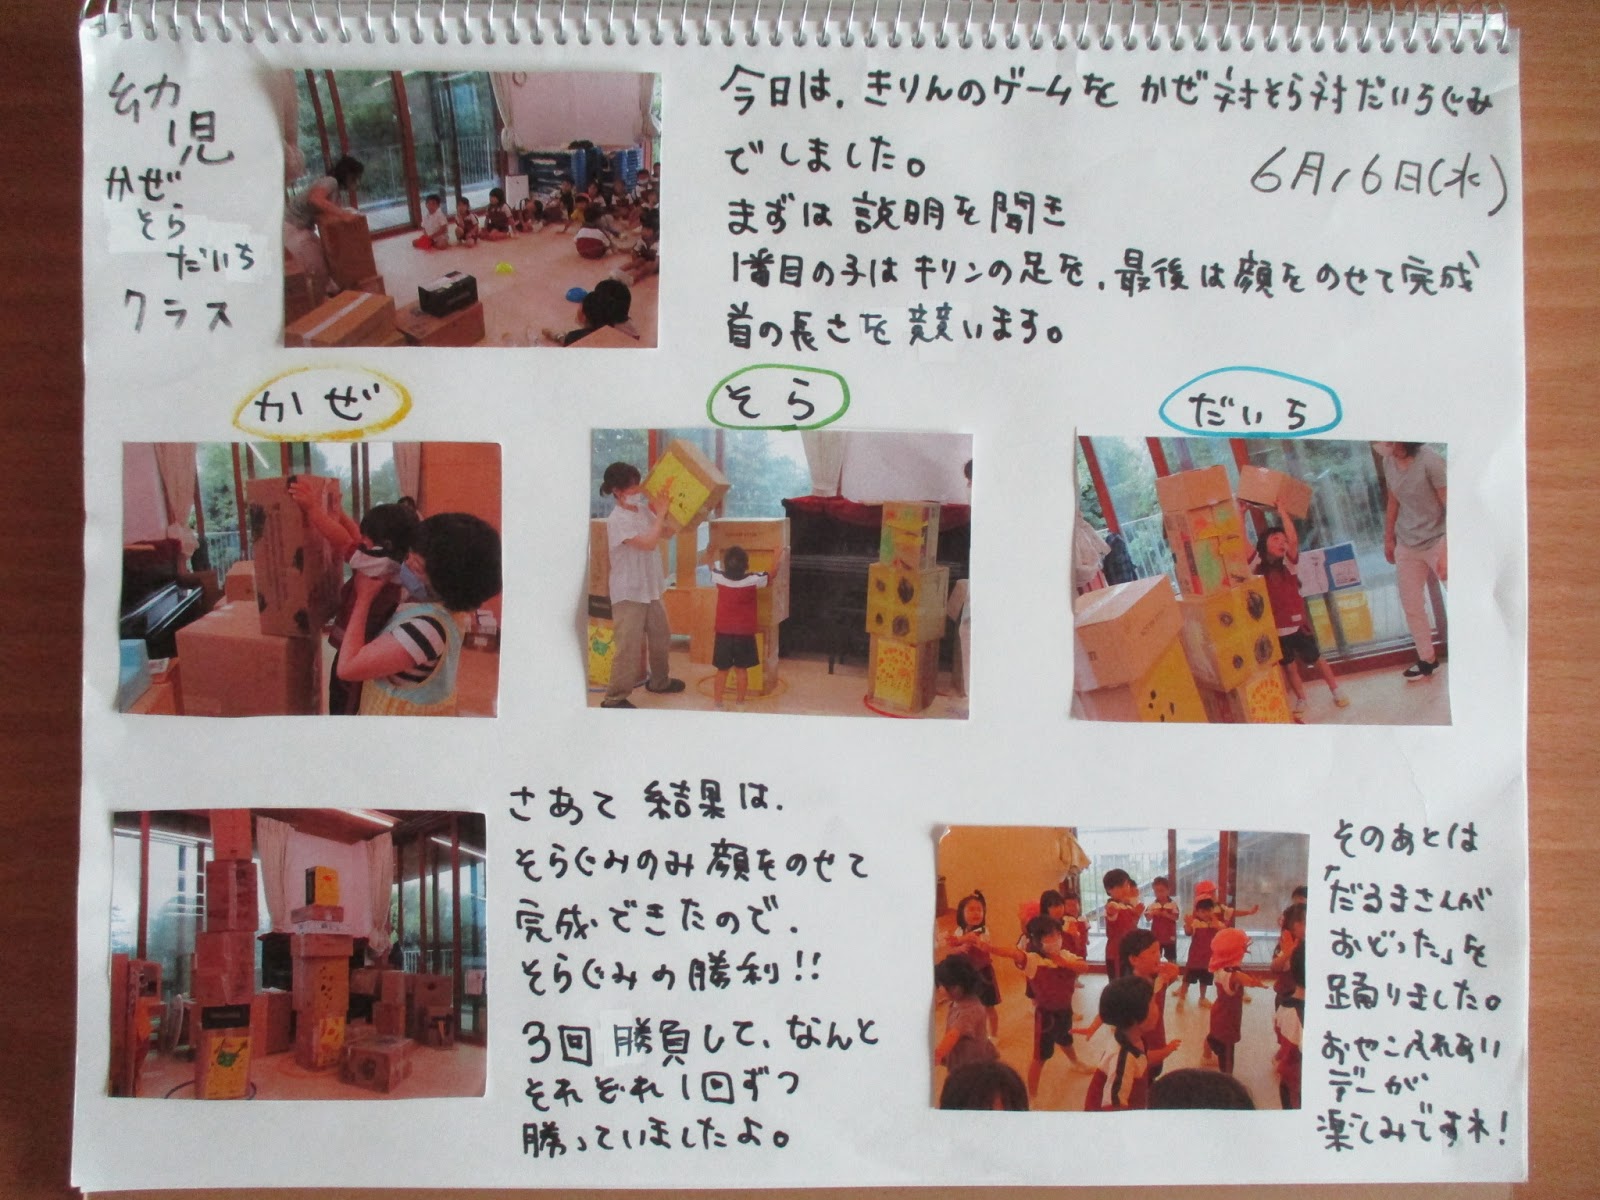 幼児
かぜ
そら
だいち
クラス
今日は、きりんのゲームを かぜ対そら対だいちぐみ
でしました。
6月16日(水)
まずは 説明を聞き
1番目の子はキリンの足を、最後は顔をのせて完成
首の長さを競います。
かぜ
そら
だいち
さあて 結果は、
そらぐみのみ顔をのせて
完成できたので、
そらぐみの勝利!!
3回 勝負して、なんと
それぞれ1回ずつ
勝っていましたよ。
そのあとは
「だるまさんが
おどった」を
踊りました。
おやこふれあい
デーが
楽しみですネ!